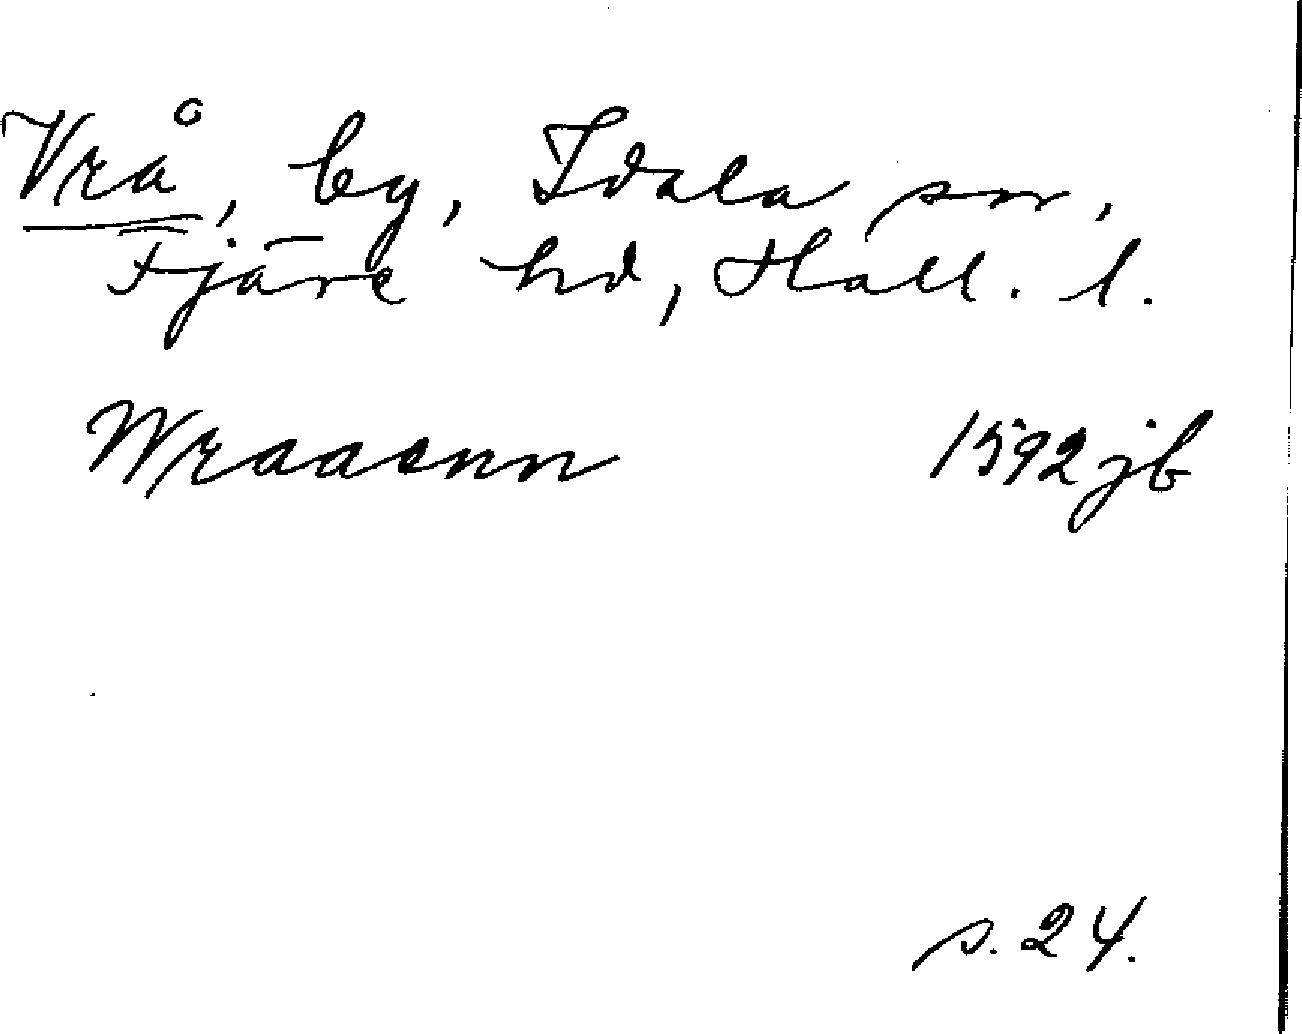 Vrå, by, Idala sn,
Fjäre hd, Hall. l.
Wraaenn 1592 jb
s. 24.